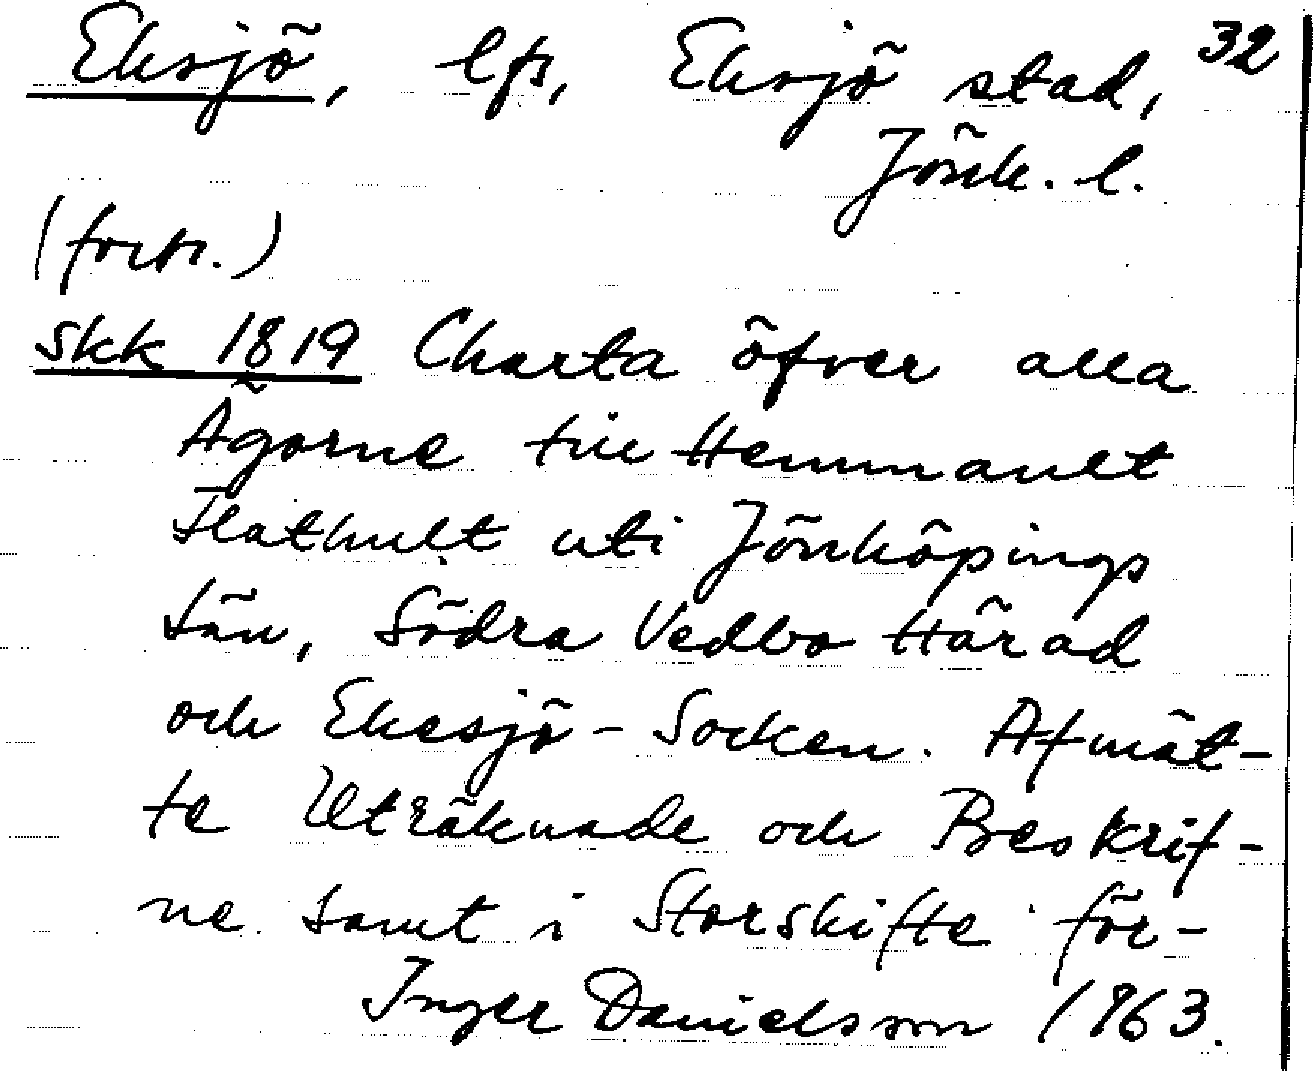 Eksjö, lfs, Eksjö stad, 32
Jönk. l.
(forts.)
Skk 1819 Charta öfver alla
Ägorne till Hemmanet
Flathult uti Jönköpings
Län, Södra Vedbo Härad
och Ekesjö-Socken. Afmät-
te Uträknade och Beskrif-
ne samt i Storskifte för-
Inger Danielsson 1963.